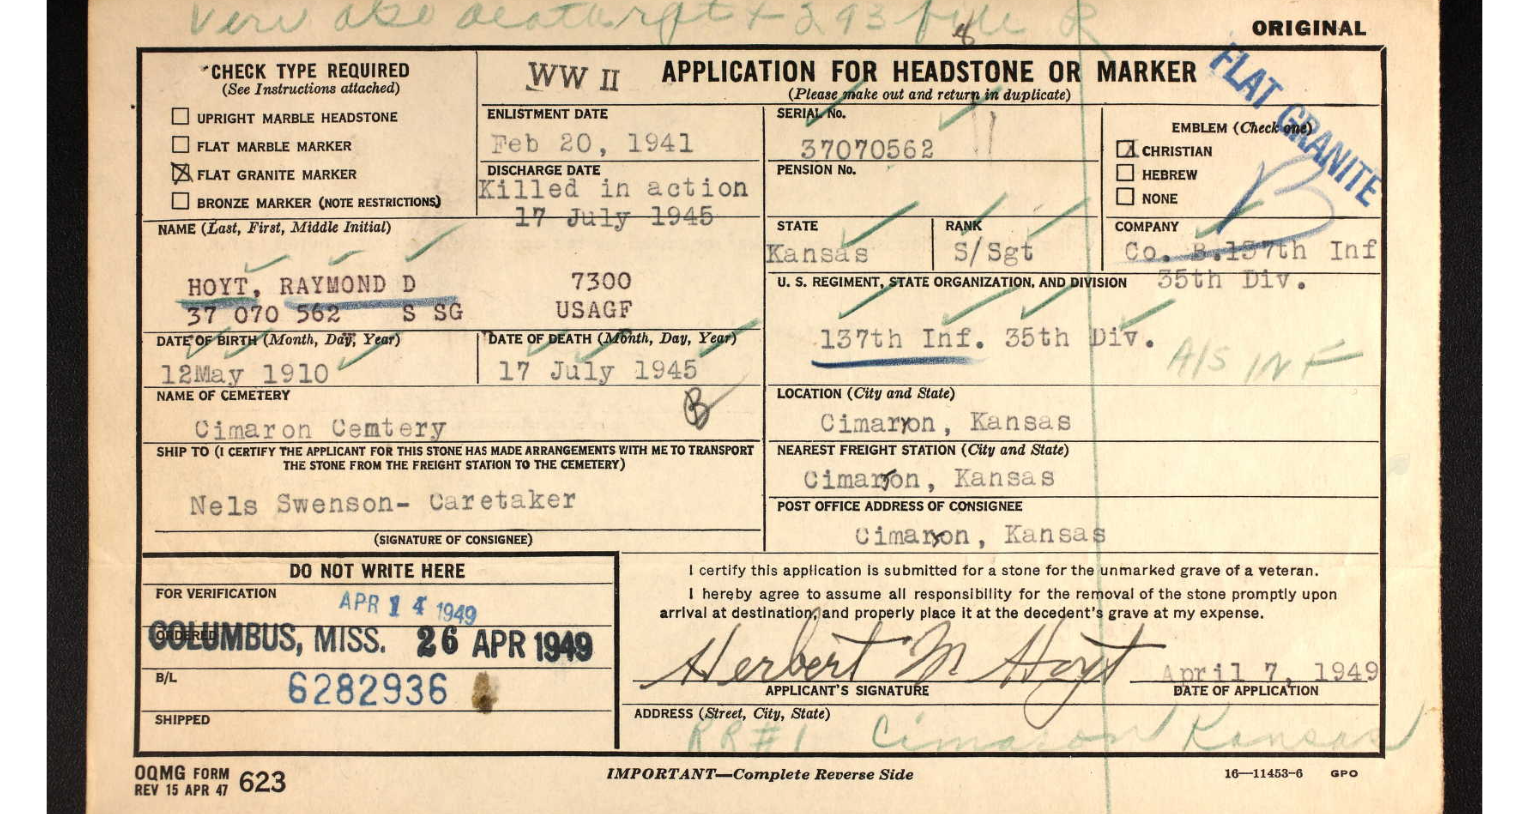 Veri also death rpt + 293 file
ORIGINAL
FLAT GRANITE
CHECK TYPE REQUIRED
(See Instructions attached)
UPRIGHT MARBLE HEADSTONE
FLAT MARBLE MARKER
☒ FLAT GRANITE MARKER
BRONZE MARKER (NOTE RESTRICTIONS)
WW II APPLICATION FOR HEADSTONE OR MARKER
(Please make out and return in duplicate)
ENLISTMENT DATE
Feb 20, 1941
DISCHARGE DATE
Killed in action
17 July 1945
SERIAL No.
37070562
PENSION No.
EMBLEM (Check one)
☒ CHRISTIAN
HEBREW
NONE
B
NAME (Last, First, Middle Initial)
HOYT, RAYMOND D 7300
37 070 562 S SG USAGF
STATE
Kansas
RANK
S/Sgt
COMPANY
Co. B.137th Inf
35th Div.
U. S. REGIMENT, STATE ORGANIZATION, AND DIVISION
137th Inf. 35th Div.
A/S INF
DATE OF BIRTH (Month, Day, Year)
12May 1910
DATE OF DEATH (Month, Day, Year)
17 July 1945
NAME OF CEMETERY
Cimaron Cemtery
B
LOCATION (City and State)
Cimaron, Kansas
SHIP TO (I CERTIFY THE APPLICANT FOR THIS STONE HAS MADE ARRANGEMENTS WITH ME TO TRANSPORT
THE STONE FROM THE FREIGHT STATION TO THE CEMETERY)
Nels Swenson- Caretaker
(SIGNATURE OF CONSIGNEE)
NEAREST FREIGHT STATION (City and State)
Cimaron, Kansas
POST OFFICE ADDRESS OF CONSIGNEE
Cimaron, Kansas
DO NOT WRITE HERE
FOR VERIFICATION
APR 14 1949
ORDERED
COLUMBUS, MISS. 26 APR 1949
B/L
6282936
SHIPPED
I certify this application is submitted for a stone for the unmarked grave of a veteran.
I hereby agree to assume all responsibility for the removal of the stone promptly upon
arrival at destination, and properly place it at the decedent's grave at my expense.
Herbert M Hoyt April 7, 1949
APPLICANT'S SIGNATURE DATE OF APPLICATION
ADDRESS (Street, City, State)
RR#1 Cimaron Kansas
OQMG FORM 623
REV 15 APR 47
IMPORTANT—Complete Reverse Side
16—11453-6 GPO